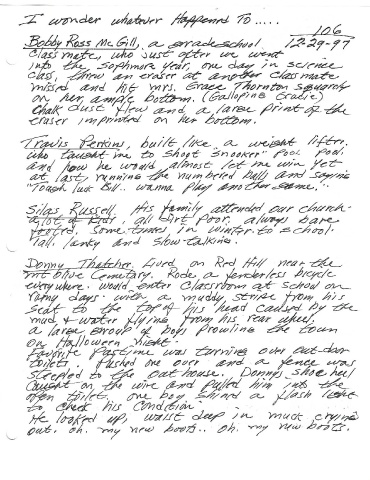 I wonder whatever Happened To.....
106
12-29-97
Bobby Ross McGill, a gradeschool
classmate, who just after we went
into the Sophmore year, one day in science
class, threw an eraser at another classmate
missed and hit mrs. Grace Thornton squarely
on her ample bottom. (Galloping Gracie)
Chalk dust flew and a large print of the
eraser imprinted on her bottom.
Travis Perkins, built like a weight lifter,
who taught me to shoot snooker pool.
and how he would almost let me win yet
at last, running the numbered balls and saying
"Tough luck Bill.. wanna play another game."
Silas Russell. His family attended our church-
a lot of kids, all dirt poor, always bare
footed. Some times in winter to school.
Tall, lanky and slow-talking.
Donny Thatcher. Lived on Red Hill near the
mt Olive Cemetary. Rode a fenderless bicycle
everywhere. would enter classroom at school on
rainy days - with a muddy stripe from his
seat to the top of his head caused by the
mud & water flying from his rear wheel.
a large group of boys prowling the town
on Halloween night.
Favorite pastime was turning over out-door
toilets. Pushed one over and a fence was
stepled to the out house. Donny's shoe heel
caught on the wire and pulled him into the
open toilet. one boy shined a flash light
to check his condition.
He looked up, waist deep in muck crying
out. oh. my new boots.. oh. my new boots.